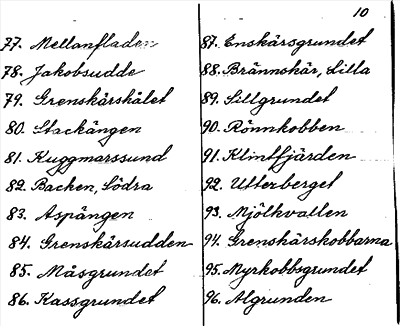 10
77. Mellanfladen
78. Jakobsudde
79. Grenskärshålet
80. Stackängen
81. Kuggmarssund
82. Backen, Södra
83. Aspängen
84. Grenskärsudden
85. Måsgrundet
86. Kassgrundet
87. Enskärsgrundet
88. Brännskär, Lilla
89. Sillgrundet
90. Rönnkobben
91. Klintfjärden
92. Utterberget
93. Mjölkvallen
94. Grenskärskobbarna
95. Myrkobbsgrundet
96. Algrunden